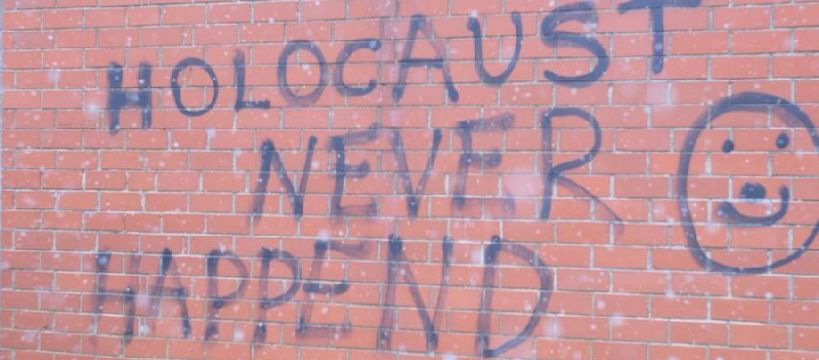 HOLOCAUST
NEVER
HAPPEND